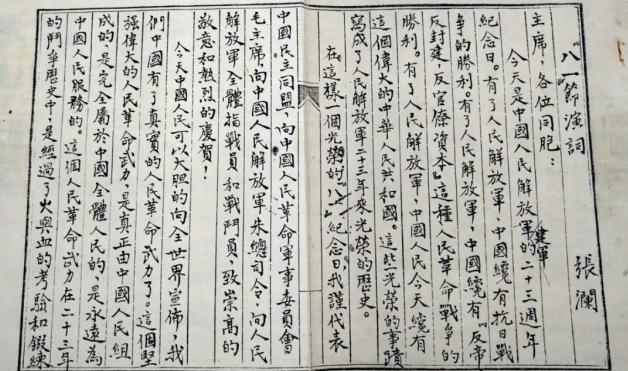 『八一』節演詞
張瀾
主席，各位同胞：
今天是中國人民解放軍的建軍二十三週年
紀念日。有了人民解放軍，中國纔有抗日戰
爭的勝利。有了人民解放軍，中國纔有『反帝
反封建，反官僚資本』這種人民革命戰爭的
勝利。有了人民解放軍，中國人民今天纔有
這個偉大的中華人民共和國。這些光榮的事蹟
寫成了人民解放軍二十三年來光榮的歷史。
在這樣一個光榮的『八一』紀念日，我謹代表
中國民主同盟，向中國人民革命軍事委員會
毛主席，向中國人民解放軍朱總司令，向人民
解放軍全體指戰員和戰鬥員，致崇高的
敬意和熱烈的慶賀！
今天中國人民可以大胆的向全世界宣佈，我
們中國有了真實的人民革命武力了。這個堅
强偉大的人民革命武力，是真正由中國人民組
成的，是完全屬於中國全體人民的，是永遠為
中國人民服務的。這個人民革命武力在二十三年
的鬥爭歷史中，是經過了火與血的考驗和鍛鍊